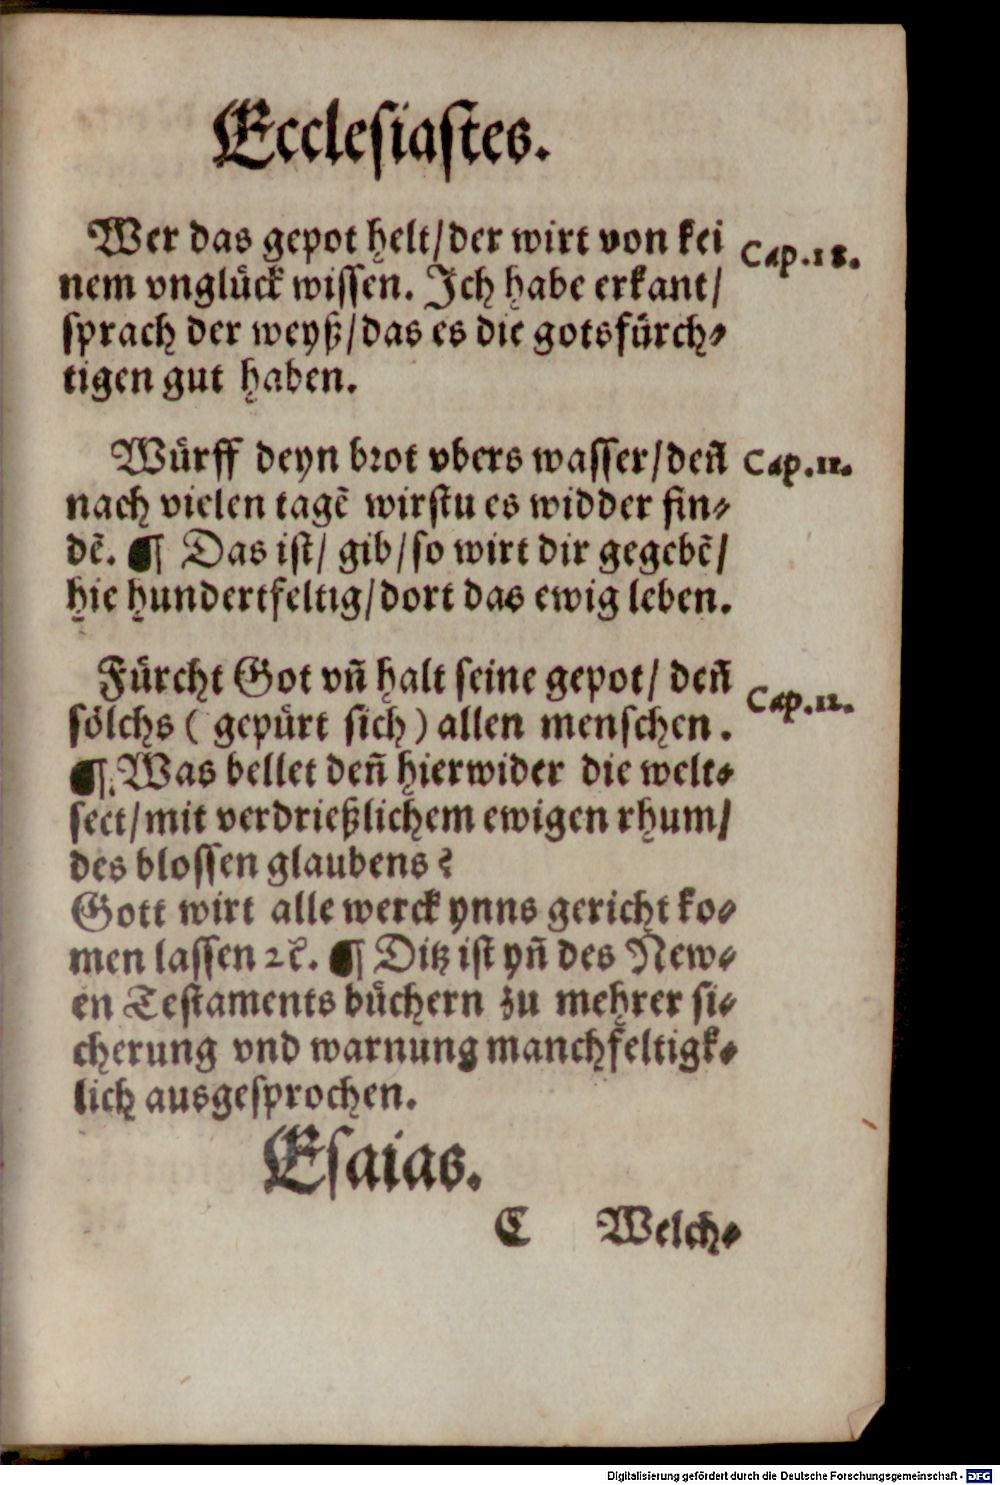 Ecclesiastes.
Wer das gepot helt/der wirt von kei Cap.18.
nem vnglück wissen. Ich habe erkant/
sprach der weyß/das es die gotsfürch⸗
tigen gut haben.
Würff deyn brot vbers wasser/deñ Cap.11.
nach vielen tagē wirstu es widder fin⸗
dē. ¶ Das ist/ gib/so wirt dir gegebē/
hie hundertfeltig/dort das ewig leben.
Fürcht Got vñ halt seine gepot/ deñ Cap.12.
sölchs ( gepürt sich ) allen menschen.
¶ Was bellet deñ hierwider die welt⸗
sect/mit verdrießlichem ewigen rhum/
des blossen glaubens?
Gott wirt alle werck ynns gericht ko⸗
men lassen ꝛc̄. ¶ Ditz ist yñ des New⸗
en Testaments büchern zu mehrer si⸗
cherung vnd warnung manchfeltigk⸗
lich ausgesprochen.
Esaias.
C Welch⸗
Digitalisierung gefördert durch die Deutsche Forschungsgemeinschaft - DFG